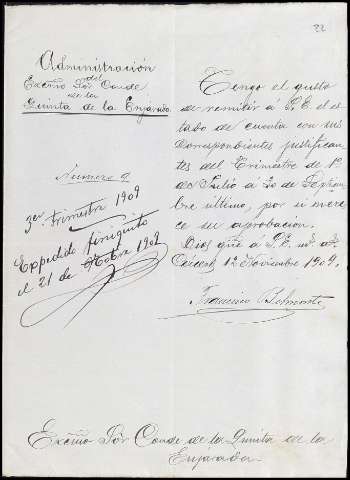 22
Administración
del
Excmo Sor Conde
de la
Quinta de la Enjarada
Numero 9
3er trimestre 1909
Expedido finiquito
el 21 de Octobre 1909
Tengo el gusto
de remitir á S.E. el es
tado de cuenta con sus
correspondientes justifican
tes del trimestre de 1º
de Julio á 30 de Septiem
bre último, por si mere
ce su aprobacion.
Dios gue á S.E. ms. as.
Cáceres 12 Noviembre 1909.
Francisco Belmonte
Excmo Sor Conde de la Quinta de la
Enjarada